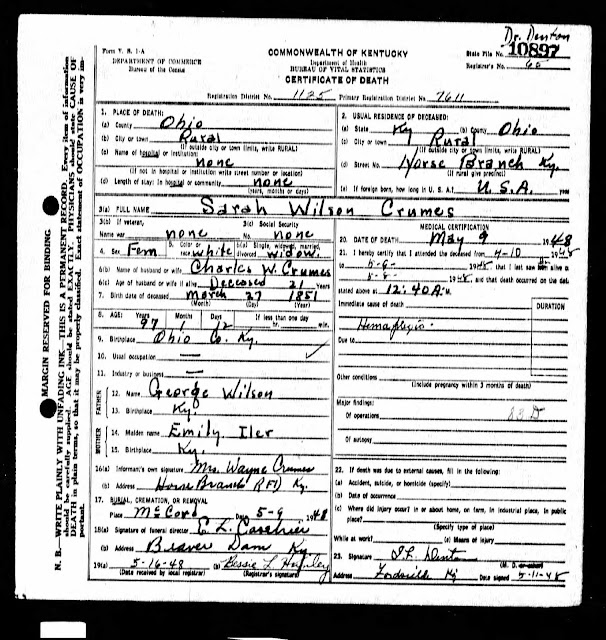 Dr. Denton
Form V. S. 1-A
DEPARTMENT OF COMMERCE
Bureau of the Census
COMMONWEALTH OF KENTUCKY
Department of Health
BUREAU OF VITAL STATISTICS
CERTIFICATE OF DEATH
State File No. 10897
Registrar's No. 65
Registration District No. 1125 Primary Registration District No. 7611
MARGIN RESERVED FOR BINDING
N. B.—WRITE PLAINLY WITH UNFADING INK—THIS IS A PERMANENT RECORD. Every item of information
should be carefully supplied. AGE should be stated EXACTLY. PHYSICIANS should state CAUSE OF
DEATH in plain terms, so that it may be properly classified. Exact statement of OCCUPATION is very im-
portant.
1. PLACE OF DEATH:
(a) County Ohio
(b) City or town Rural
(If outside city or town limits, write RURAL)
(c) Name of hospital or institution:
none
(If not in hospital or institution write street number or location)
(d) Length of stay: In hospital or community none
(years, months or days)
2. USUAL RESIDENCE OF DECEASED:
(a) State Ky (b) County Ohio
(c) City or town Rural
(If outside city or town limits, write RURAL)
(d) Street No. Horse Branch Ky.
(If rural give precinct)
(e) If foreign born, how long in U. S. A.? U.S.A. years
3(a) FULL NAME Sarah Wilson Crumes
3(b) If veteran,
Name war none
3(c) Social Security
No. none
4. Sex Fem 5. Color or race white 6(a) Single, widowed, married, divorced widow.
6(b) Name of husband or wife Charles W. Crumes
6(c) Age of husband or wife if alive Deceased 21 Years
7. Birth date of deceased March 27 1851
(Month) (Day) (Year)
8. AGE: Years Months Days If less than one day
97 1 12 hr. min.
9. Birthplace Ohio Co. Ky.
10. Usual occupation —
11. Industry or business —
FATHER
12. Name George Wilson
13. Birthplace Ky.
MOTHER
14. Maiden name Emily Iler
15. Birthplace Ky
16(a) Informant's own signature Mrs. Wayne Crumes
(b) Address Horse Branch RFD Ky.
17. BURIAL, CREMATION, OR REMOVAL
Place McCord Date 5-9 1948
18(a) Signature of funeral director
(b) Address Beaver Dam Ky.
19(a) 5-16-48 (b) Bessie L
(Date received by local registrar) (Registrar's signature)
MEDICAL CERTIFICATION
20. DATE OF DEATH May 9 1948
21. I hereby certify that I attended the deceased from 4-10 1948
to 5-6- 1948, that I last saw alive on
5-6- 1948, and that death occurred on the date
stated above at 12:40 A. M.
Immediate cause of death
DURATION
Hemaplegia
Due to
Other conditions
(Include pregnancy within 3 months of death)
Major findings:
Of operations 83 D
Of autopsy
22. If death was due to external causes, fill in the following:
(a) Accident, suicide, or homicide (specify)
(b) Date of occurrence
(c) Where did injury occur? In or about home, on farm, in industrial place, in public
place?
(Specify type of place)
While at work? (e) Means of injury
23. Signature
(M. D. or other)
Address Fordsville Ky Date signed 5-11-48